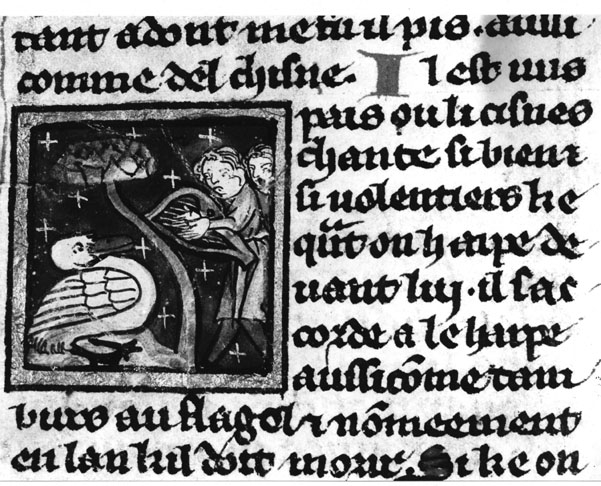 tant adont il pis. aussi
comme del chisne. Il est uns
pais ou li cisnes
chante si bien ⁊
si uolentiers ke
qᵃnt on harpe de
uant luy. il sac
corde a le harpe
aussi cōme tam
burs au flagol ⁊ nōmeement
en lan kil doit morir. Si ke on